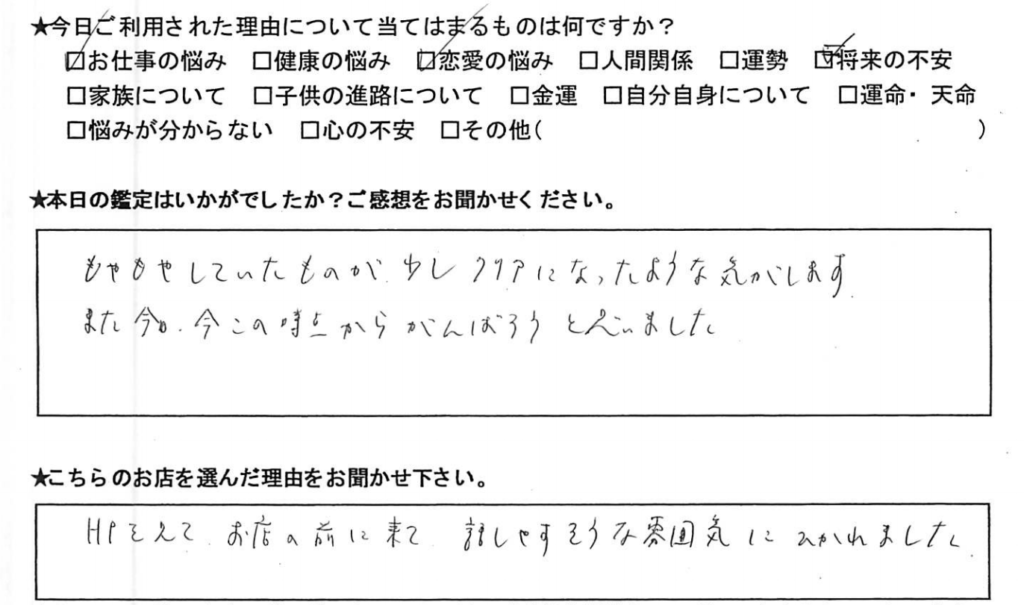 ★今日ご利用された理由について当てはまるものは何ですか？
☑お仕事の悩み □健康の悩み ☑恋愛の悩み □人間関係 □運勢 ☑将来の不安
□家族について □子供の進路について □金運 □自分自身について □運命・天命
□悩みが分からない □心の不安 □その他( )
★本日の鑑定はいかがでしたか？ご感想をお聞かせください。
もやもやしていたものが 少し クリアになったような気がします
また 今 この時点から がんばろう と思いました
★こちらのお店を選んだ理由をお聞かせ下さい。
HPをみて お店の前に来て 話しやすそうな雰囲気に ひかれました